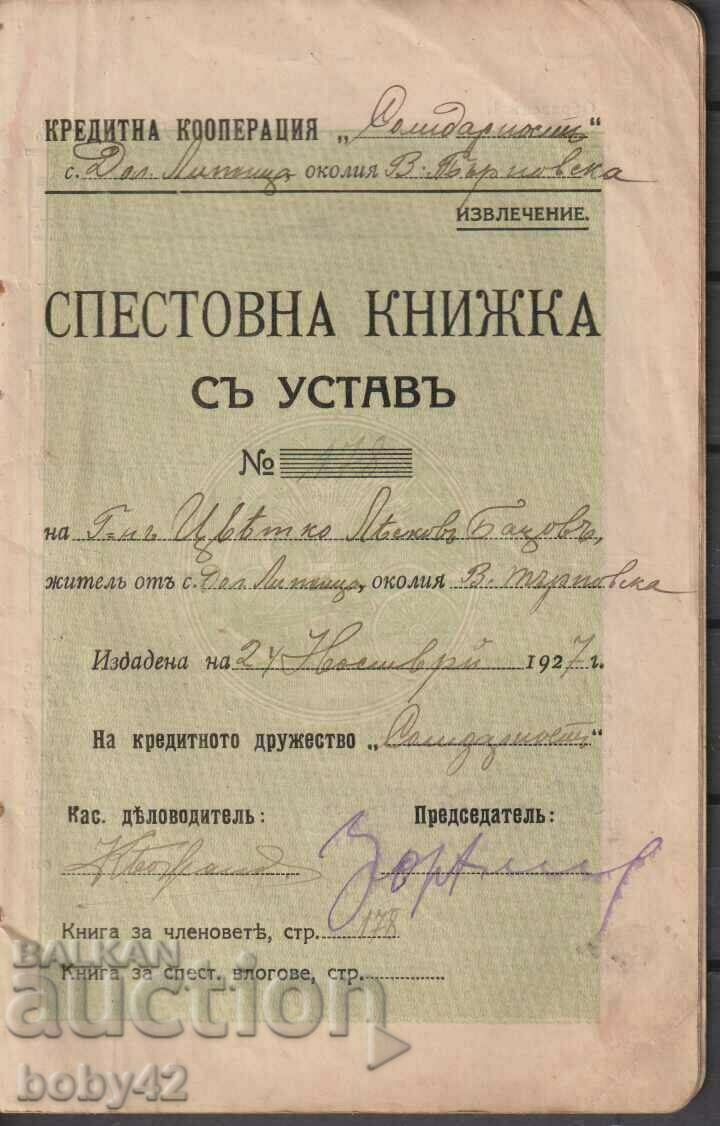 КРЕДИТНА КООПЕРАЦИЯ „Солидарность“
с. Дол. Липница, околия В. Търновска
ИЗВЛЕЧЕНИЕ.
СПЕСТОВНА КНИЖКА
СЪ УСТАВЪ
№ 178
на Г-нъ Цвѣтко Пѣсковъ Бацовъ,
житель отъ с. Дол. Липница, околия В. Търновска
Издадена на 24 Ноемврий 1927 г.
На кредитното дружество „Солидарность“
Кас. дѣловодитель: Председатель:
Книга за членоветѣ, стр. 178
Книга за спест. влогове, стр.
BALKAN
auction
boby42